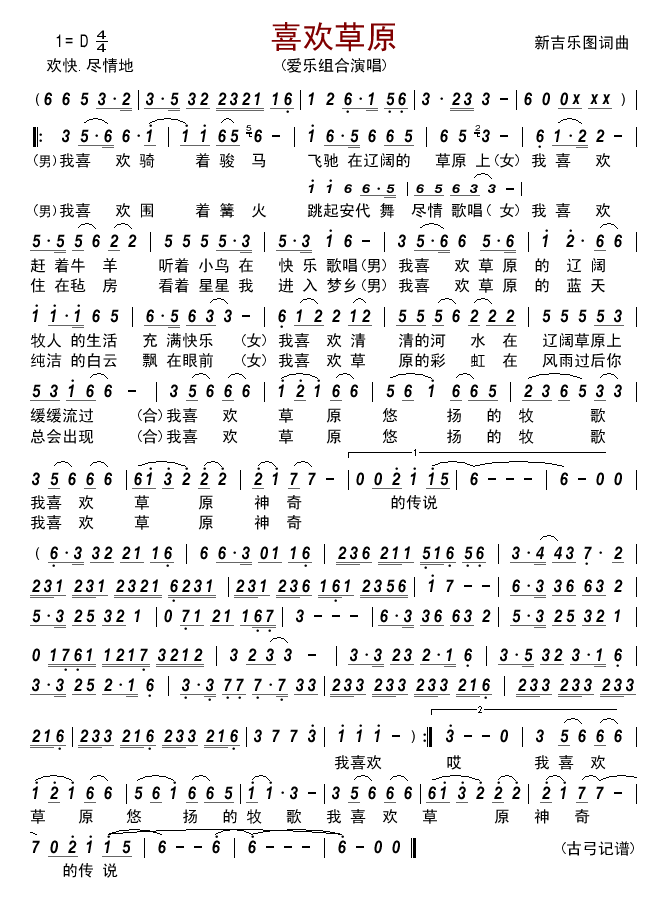 喜欢草原
1= D 4/4
新吉乐图词曲
欢快.尽情地
(爱乐组合演唱)
( 6 6 5 3·2 | 3·5 32 2321 16 | 1 2 6·1 56 | 3 · 23 3 – | 6 0 0x xx )
|: 3 5·6 6·1 | 1 1 65 6 – | 16·5 665 | 65 3 – | 6 1·2 2 –
(男)我喜 欢 骑 着 骏 马 飞驰 在辽阔的 草原 上(女) 我 喜 欢
1 1 6 6·5 | 6 5 6 3 3 – |
(男)我喜 欢 围 着 篝 火 跳起安代 舞 尽情 歌唱(女) 我 喜 欢
5·5 5 6 2 2 | 5 5 5 5·3 | 5·3 1 6 – | 3 5·6 6 5·6 | 1 2·6 6
赶 着牛 羊 听着 小鸟 在 快 乐 歌唱(男) 我喜 欢 草 原 的 辽 阔
住 在毡 房 看着 星星 我 进 入 梦乡(男) 我喜 欢 草 原 的 蓝 天
1 1·1 6 5 | 6·5 6 3 3 – | 6 1 2 2 1 2 | 5 5 5 6 2 2 2 | 5 5 5 5 3
牧人 的生活 充 满快乐 (女)我喜 欢 清 清的河 水 在 辽阔草原上
纯洁 的白云 飘 在眼前 (女)我喜 欢 草 原的彩 虹 在 风雨过后你
5 3 1 6 6 – | 3 5 6 6 6 | 1 2 1 6 6 | 5 6 1 6 6 5 | 2 3 6 5 3 3
缓缓流过 (合)我喜 欢 草 原 悠 扬 的 牧 歌
总会出现 (合)我喜 欢 草 原 悠 扬 的 牧 歌
1
3 5 6 6 6 | 6 1 3 2 2 2 | 2 1 7 7 – | 0 0 2 1 1 5 | 6 – – – | 6 – 0 0 |
我喜 欢 草 原 神 奇 的传说
我喜 欢 草 原 神 奇
( 6·3 32 21 16 | 6 6·3 01 16 | 236 211 516 56 | 3·4 43 7·2
231 231 2321 6231 | 231 236 161 2356 | 1 7 – – | 6·3 36 63 2
5·3 25 32 1 | 0 71 21 167 | 3 – – – | 6·3 36 63 2 | 5·3 25 32 1
0 1761 1217 3212 | 3 2 3 3 – | 3·3 23 2·1 6 | 3·3 25 32 3·1 6
3·3 25 2·1 6 | 3·3 77 7·7 33 | 233 233 233 216 | 233 233 233
2
216 | 233 216 233 216 | 3 7 7 3 | 1 1 1 – ) :| 3 – – 0 | 3 5 6 6 6
我喜欢 哎 我 喜 欢
1 2 1 6 6 | 5 6 1 6 6 5 | 1 1·3 – | 3 5 6 6 6 | 6 1 3 2 2 2 | 2 1 7 7 –
草 原 悠 扬 的 牧 歌 我 喜 欢 草 原 神 奇
7 0 2 1 1 5 | 6 – – 6 | 6 – – – | 6 – 0 0 ‖
的传 说
(古弓记谱)